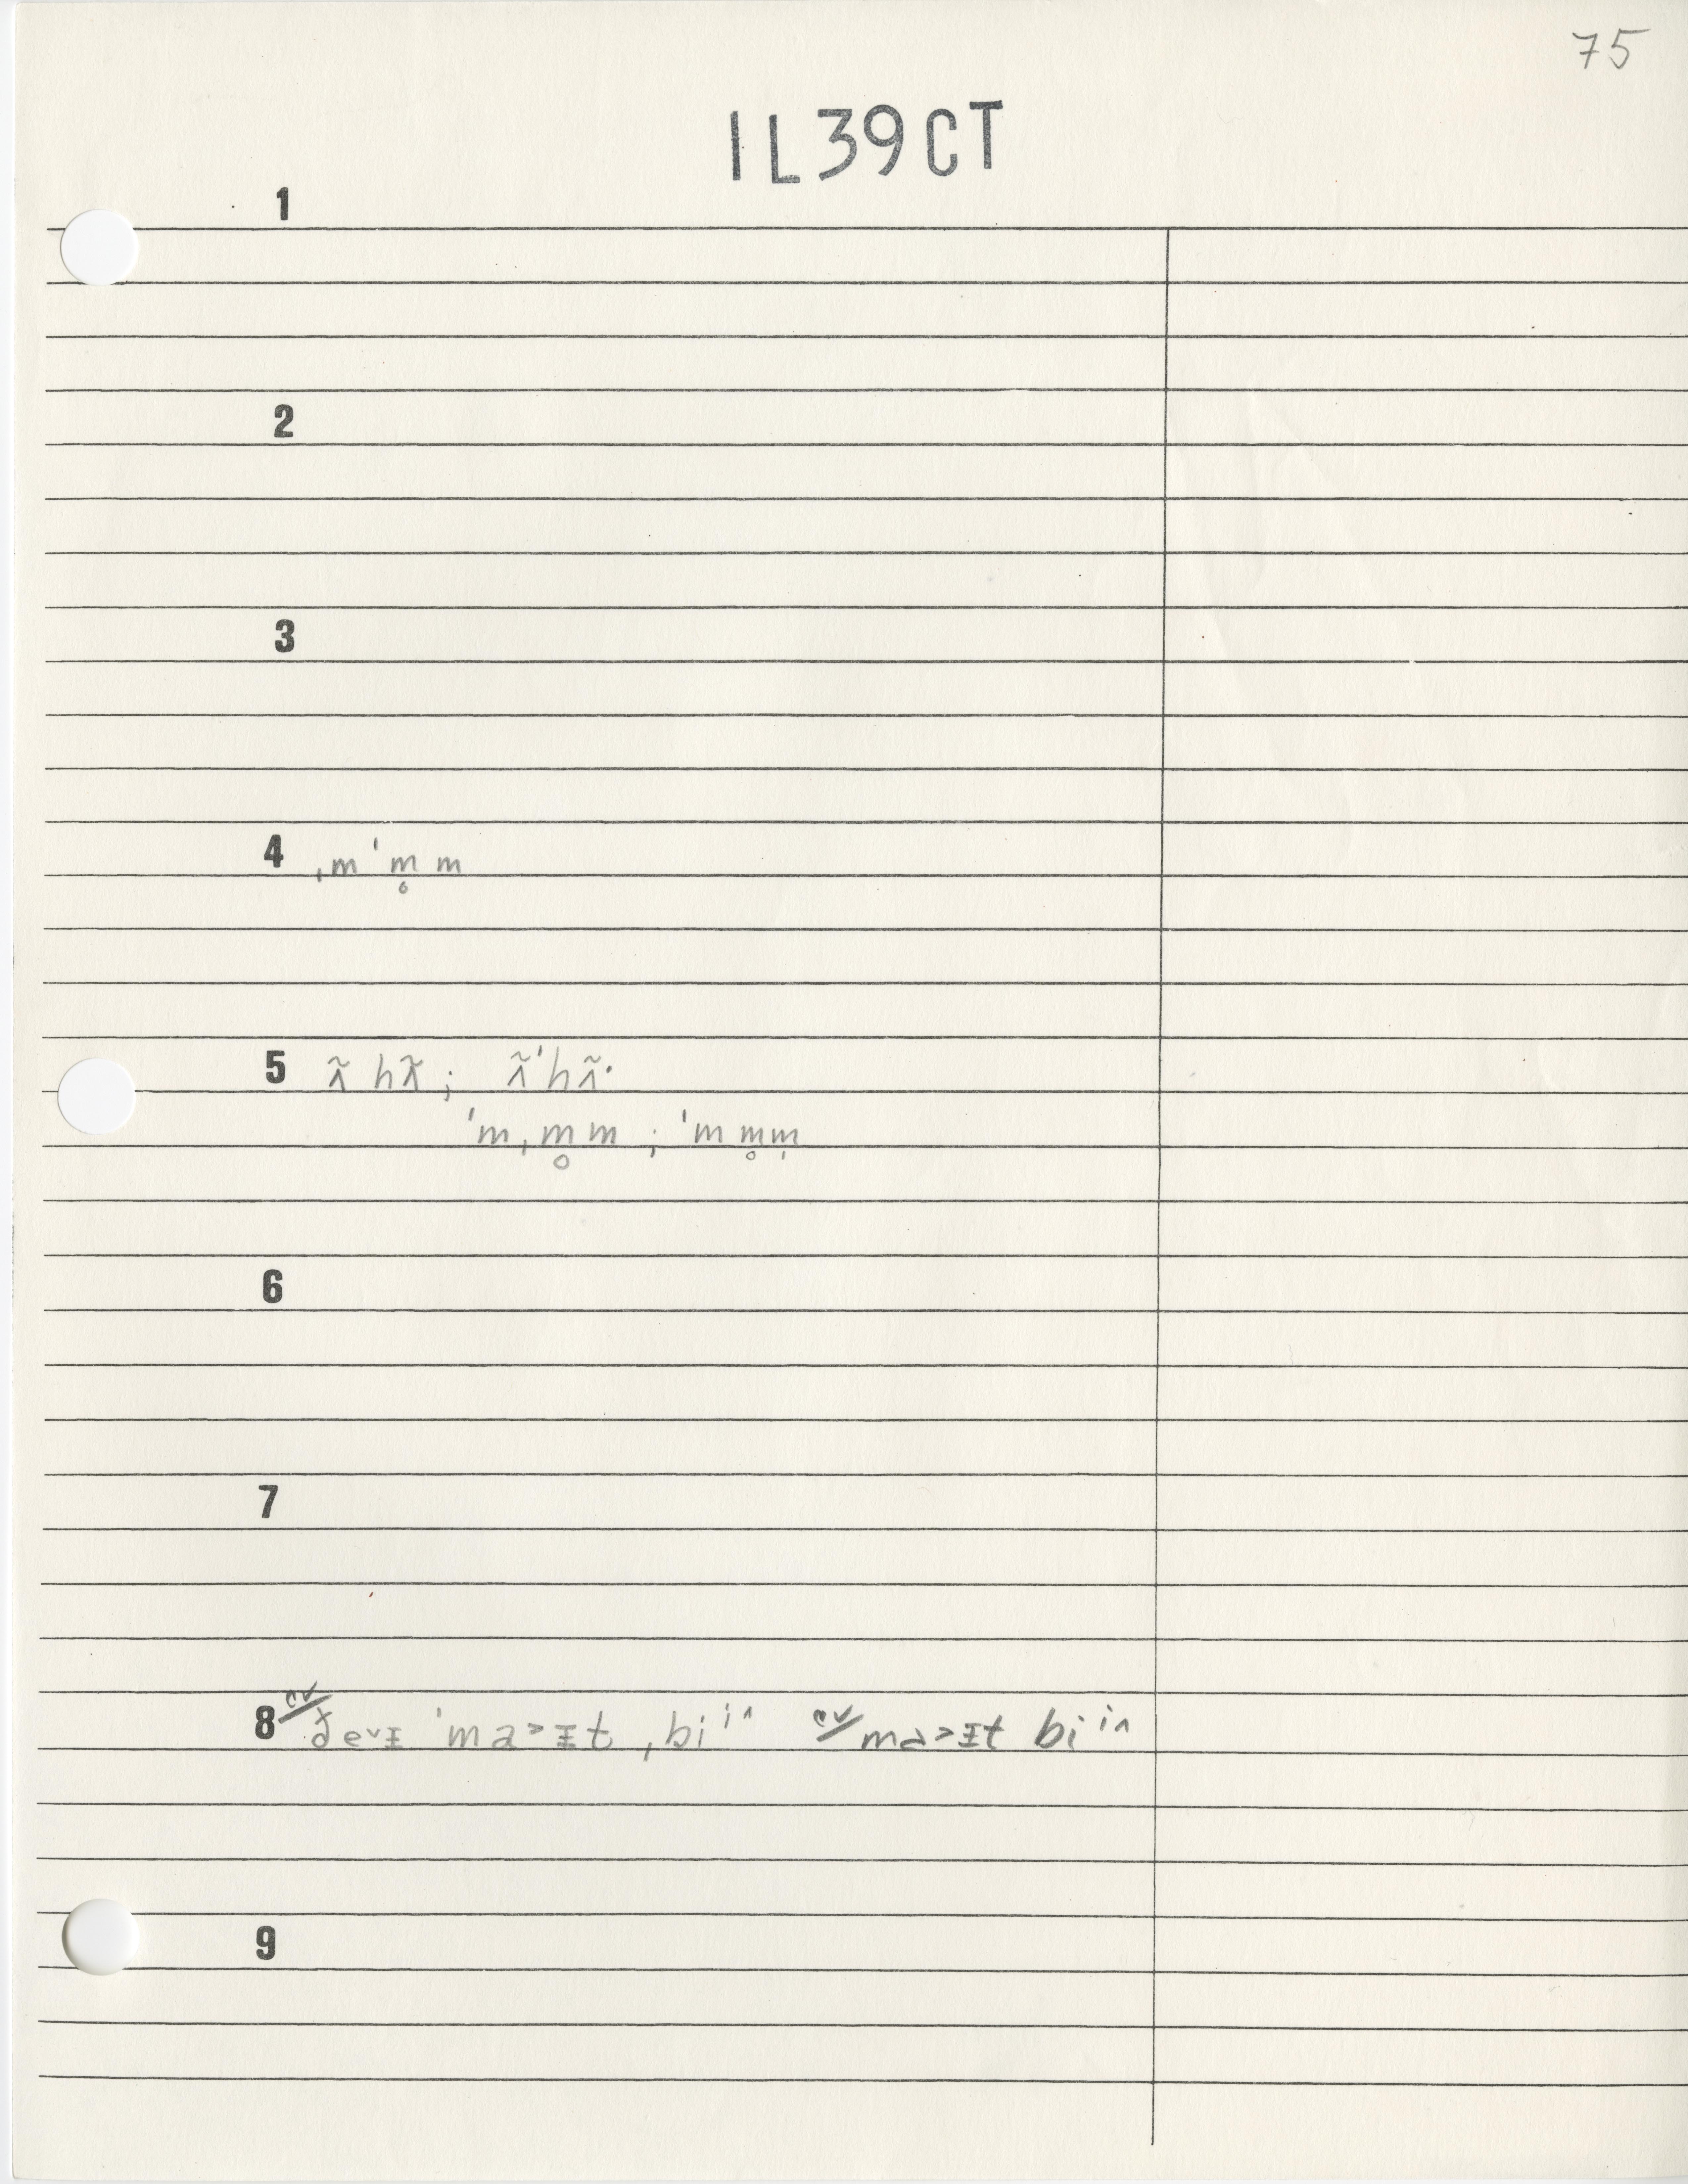 75
IL39CT
1
2
3
4 ˌm ˈm̥ m
5 ʌ̃ hʌ̃ ; ʌ̃ˈhʌ̃·
ˈm ˌm̥ m ; ˈm m̥m̩
6
7
8 cv/ ðe˅ɪ ˈma˃ɪt ˌbi iʌ cv/ ma˃ɪt bi iʌ
9